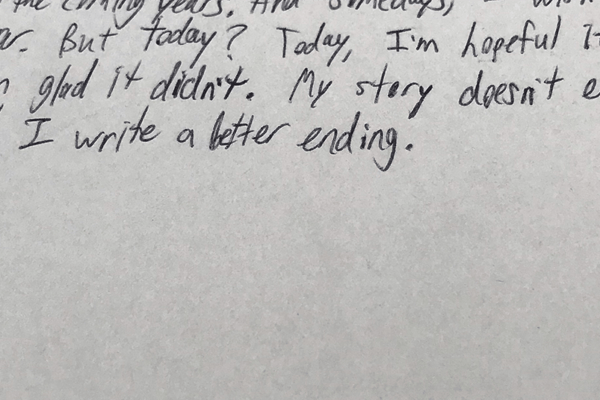 the coming years. And somedays, I
. But today? Today, I'm hopeful
glad it didn't. My story doesn't
I write a better ending.